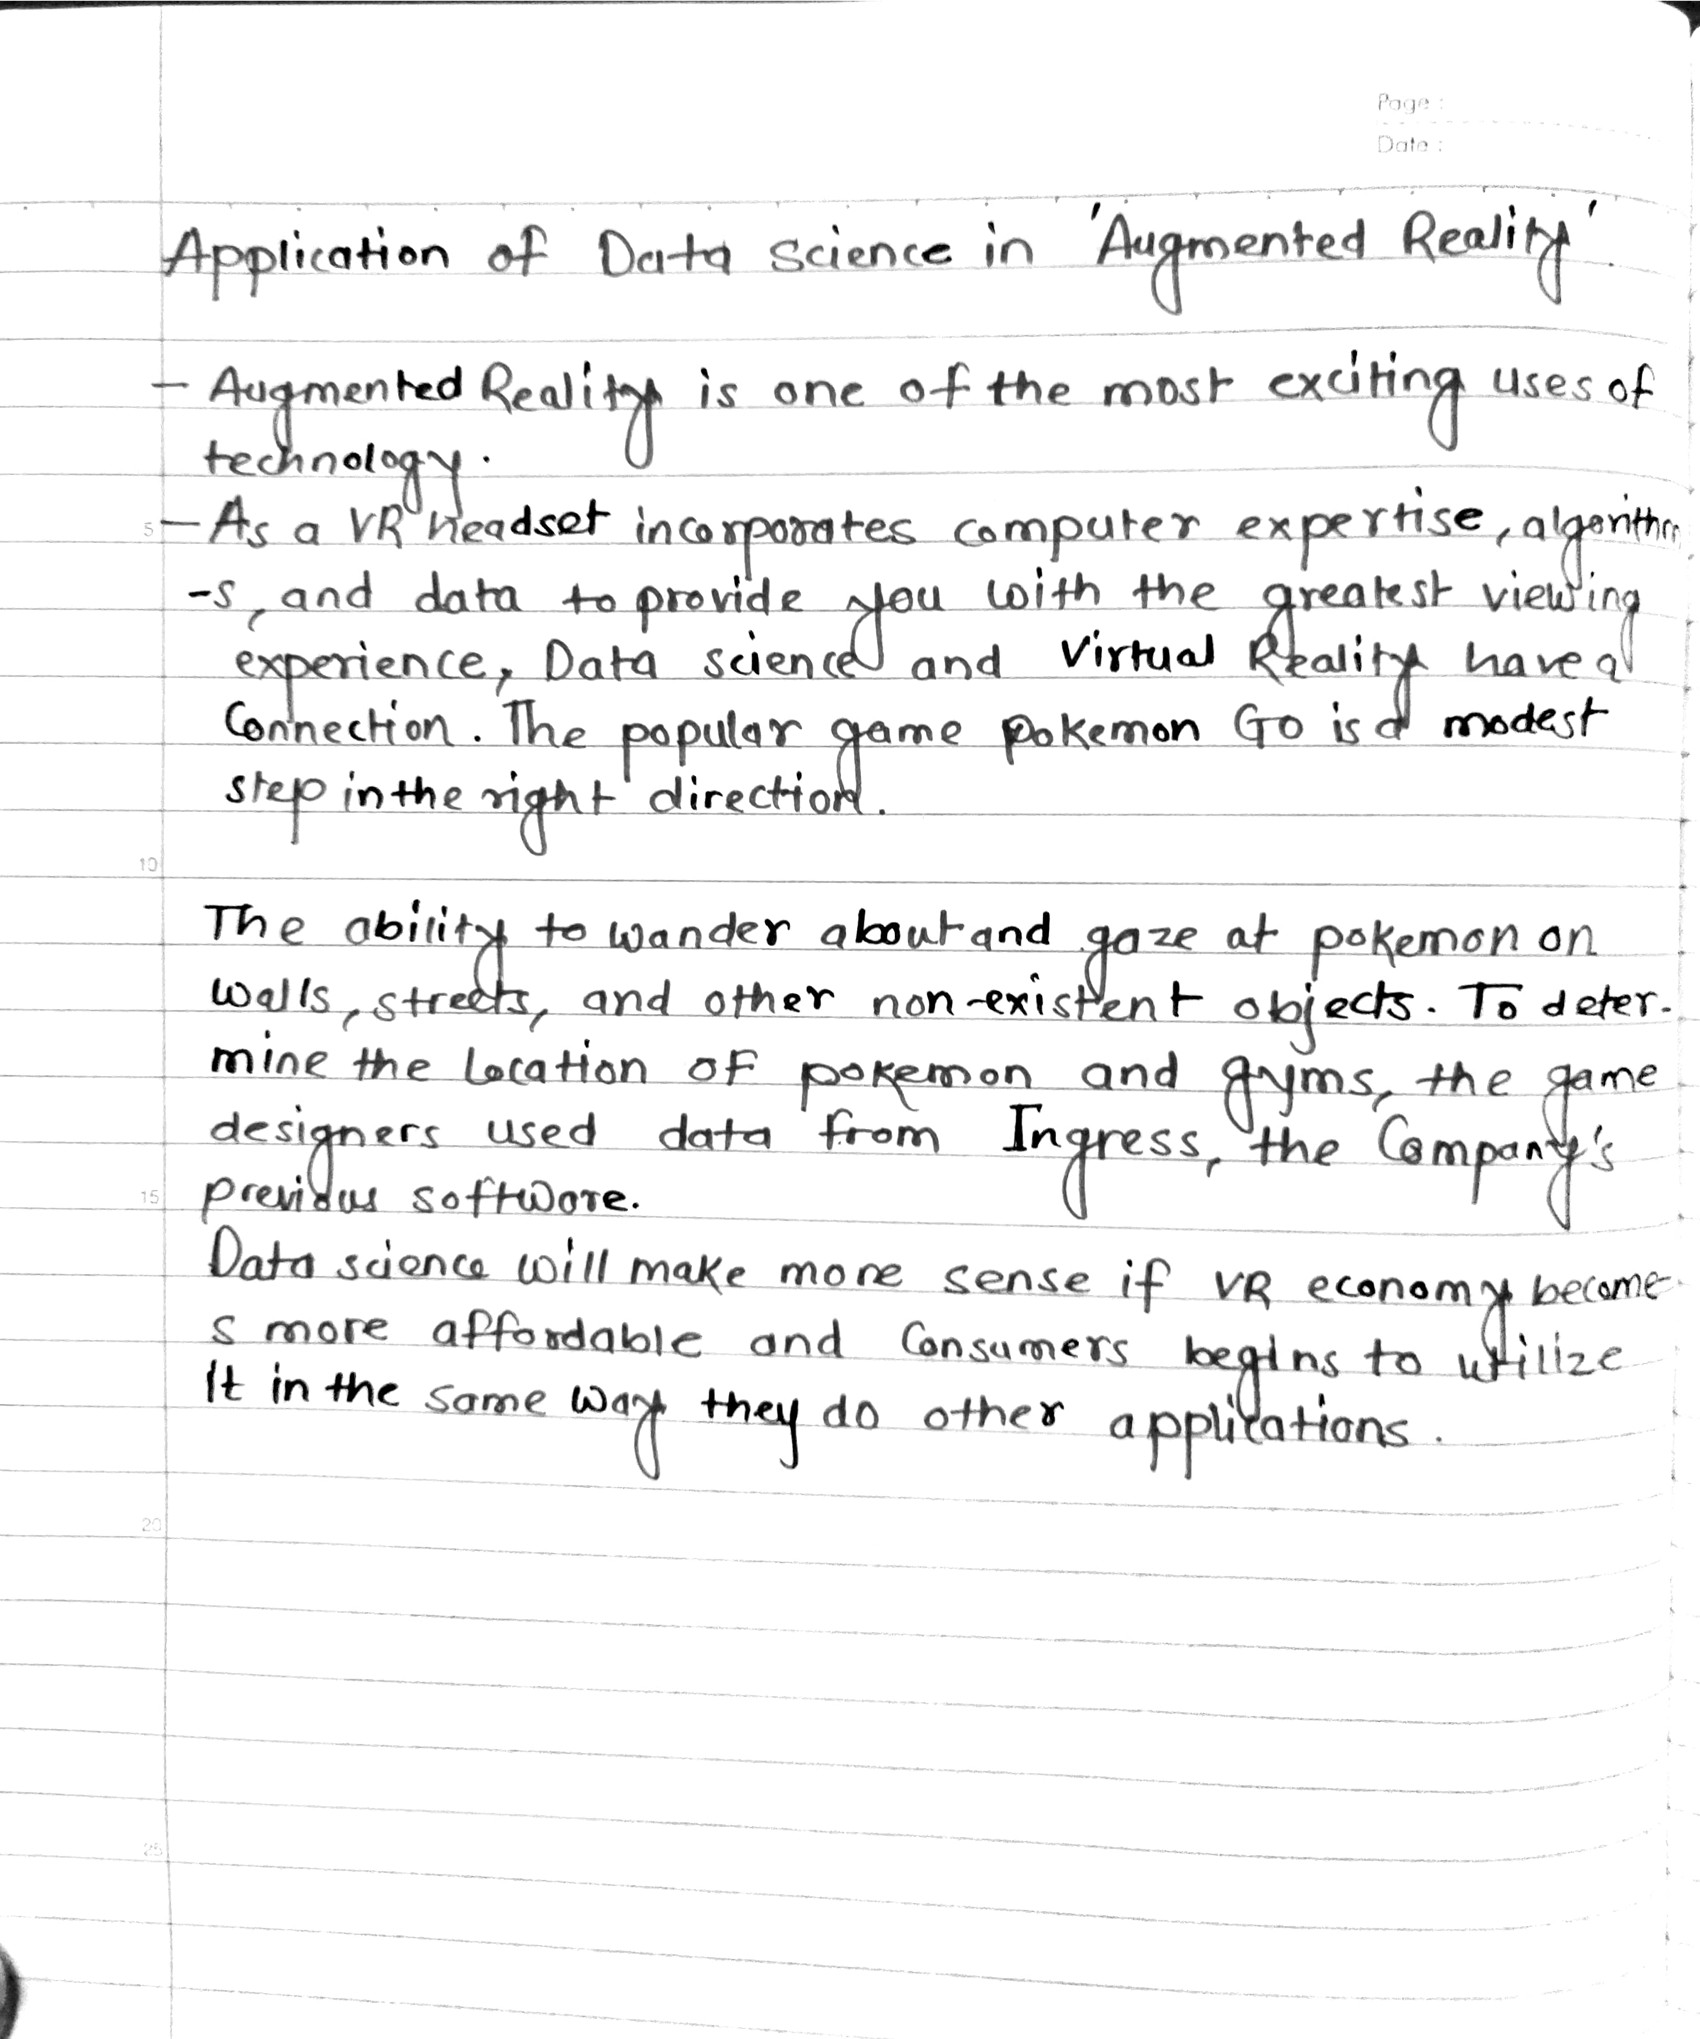 Page :
Date :
Application of Data science in 'Augmented Reality'.
- Augmented Reality is one of the most exciting uses of
technology.
5
- As a VR headset incorporates computer expertise, algorithm
-s, and data to provide you with the greatest viewing
experience, Data science and Virtual Reality have a
Connection. The popular game pokemon Go is a modest
step in the right direction.
10
The ability to wander about and gaze at pokemon on
walls, streets, and other non-existent objects. To deter-
mine the location of pokemon and gyms, the game
designers used data from Ingress, the Company's
15
previous software.
Data science will make more sense if VR economy become-
s more affordable and Consumers begins to utilize
It in the same way they do other applications.
20
25